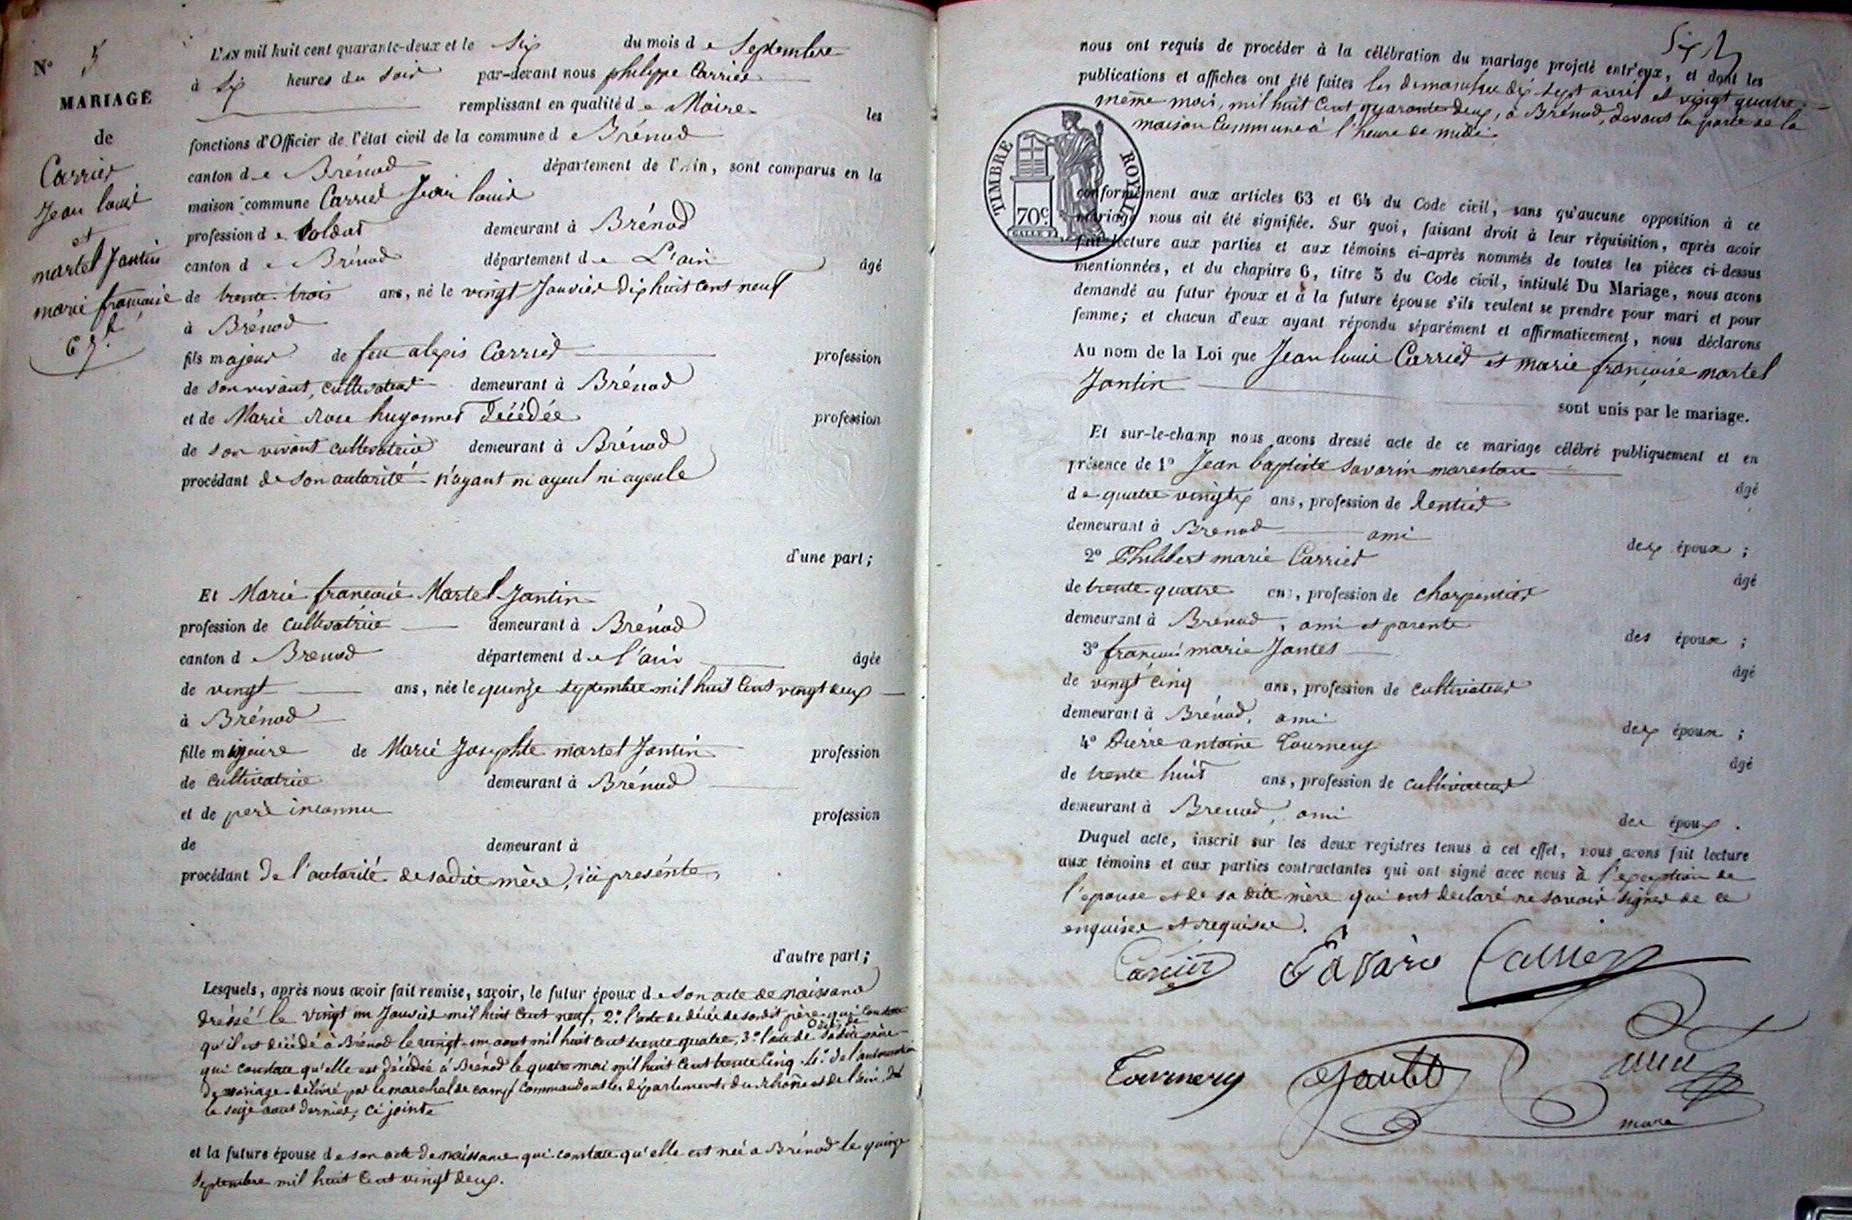 N° 5
MARIAGE
de
Carrier
Jean louis
et
martel Jantin
marie françoise
L'AN mil huit cent quarante-deux et le Six du mois de Septembre
à Six heures du soir par-devant nous philippe Carrier
remplissant en qualité de Maire les
fonctions d'Officier de l'état civil de la commune de Brénod
canton de Brénod département de l'Ain, sont comparus en la
maison commune Carrier Jean louis
profession de soldat demeurant à Brénod
canton de Brénod département de L'ain âgé
de trente trois ans, né le vingt Janvier dix huit cent neuf
à Brénod
fils majeur de feu alexis Carrier profession
de son vivant, cultivateur demeurant à Brénod
et de Marie Rose huyonnet Décédée profession
de son vivant cultivatrice demeurant à Brénod
procédant de son autorité n'ayant ni ayeul ni ayeule
d'une part;
Et Marie françoise Martel Jantin
profession de cultivatrice demeurant à Brénod
canton de Brenod département de l'ain âgée
de vingt ans, née le quinze septembre mil huit Cent vingt deux
à Brénod
fille mineure de Marie Josephte martel Jantin profession
de cultivatrice demeurant à Brénod
et de père inconnu profession
de demeurant à
procédant de l'autorité de sadite mère, ici présente,
d'autre part;
Lesquels, après nous avoir fait remise, savoir, le futur époux de son acte de naissance
dressé le vingt un Janvier mil huit Cent neuf, 2° l'acte de décès de sondit père qui constate
qu'il est décédé à Brénod le vingt-un aout mil huit cent trente quatre, 3° l'acte de Décès de sadite mère
qui constate qu'elle est décédée à Brénod le quatre mai mil huit Cent trente Cinq. 4° de l'autorisation
de mariage délivré par le maréchal de camp Commandant les départements du rhône et de l'ain,
le seize aout dernier, ci jointe
et la future épouse de son acte de naissance qui constate qu'elle est née à Brénod le quinze
Septembre mil huit Cent vingt deux.
Six
nous ont requis de procéder à la célébration du mariage projeté entr'eux, et dont les
publications et affiches ont été faites les dimanches dix sept avril et vingt quatre
même mois, mil huit Cent quarante deux, à Brénod, devant la porte de la
maison Commune à l'heure de midi.
TIMBRE ROYAL
70c
conformément aux articles 63 et 64 du Code civil, sans qu'aucune opposition à ce
mariage nous ait été signifiée. Sur quoi, faisant droit à leur réquisition, après avoir
fait lecture aux parties et aux témoins ci-après nommés de toutes les pièces ci-dessus
mentionnées, et du chapitre 6, titre 5 du Code civil, intitulé Du Mariage, nous avons
demandé au futur époux et à la future épouse s'ils veulent se prendre pour mari et pour
femme; et chacun d'eux ayant répondu séparément et affirmativement, nous déclarons
Au nom de la Loi que Jean louis Carrier et marie françoise martel
Jantin
sont unis par le mariage.
Et sur-le-champ nous avons dressé acte de ce mariage célébré publiquement et en
présence de 1° Jean baptiste Savarin marestan âgé
de quatre vingt ans, profession de Rentier
demeurant à Brenod ami des époux;
2° Philibert marie Carrier âgé
de trente quatre ans, profession de charpentier
demeurant à Brénod, ami et parente des époux;
3° françois marie Jantet âgé
de vingt cinq ans, profession de cultivateur
demeurant à Brénod, ami des époux;
4° Pierre antoine Tournery âgé
de trente huit ans, profession de cultivateur
demeurant à Brenod, ami des époux.
Duquel acte, inscrit sur les deux registres tenus à cet effet, nous avons fait lecture
aux témoins et aux parties contractantes qui ont signé avec nous à l'exception de
l'épouse et de sa dite mère qui ont déclaré ne savoir signer de ce
enquises et requises.
Carrier Savarin Carrier
Tournery Jantet Carrier
maire